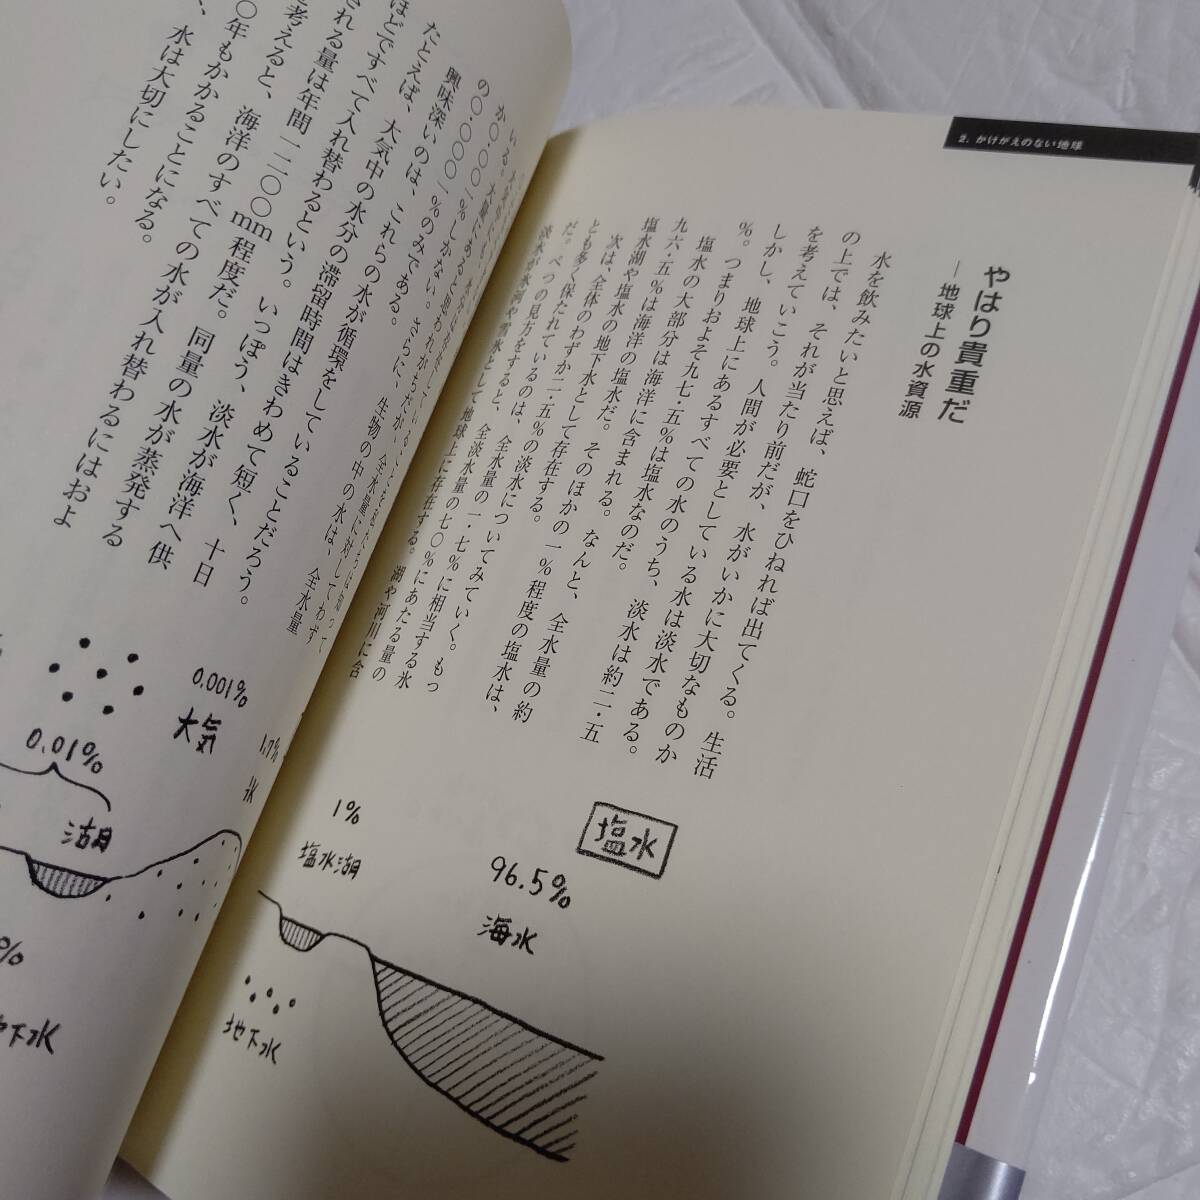 2. かけがえのない地球
やはり貴重だ
―地球上の水資源
水を飲みたいと思えば、蛇口をひねれば出てくる。生活
の上では、それが当たり前だが、水がいかに大切なものか
を考えていこう。人間が必要としている水は淡水である。
しかし、地球上にあるすべての水のうち、淡水は約二・五
%。つまりおよそ九七・五%は塩水なのだ。
塩水の大部分は海洋に含まれる。なんと、全水量の約
九六・五%は海洋の塩水だ。そのほかの一%程度の塩水は、
塩水湖や塩水の地下水として存在する。
次は、全体のわずか二・五%の淡水についてみていく。もっ
とも多く保たれているのは、全水量の一・七%に相当する氷
だ。べつの見方をすると、全淡水量の七〇%にあたる量の
淡水が氷河や雪氷として地球上に存在する。湖や河川に含
塩水
96.5%
海水
1%
塩水湖
地下水
1.7%
氷
全水量に対してわず
か〇・〇〇一%しかない。さらに、生物の中の水は、全水量
の〇・〇〇〇一%のみである。
興味深いのは、これらの水が循環をしていることだろう。
たとえば、大気中の水分の滞留時間はきわめて短く、十日
ほどですべて入れ替わるという。いっぽう、淡水が海洋へ供
される量は年間一二〇〇mm程度だ。同量の水が蒸発する
を考えると、海洋のすべての水が入れ替わるにはおよ
〇年もかかることになる。
、水は大切にしたい。
0.001%
大気
0.01%
湖
%
地下水